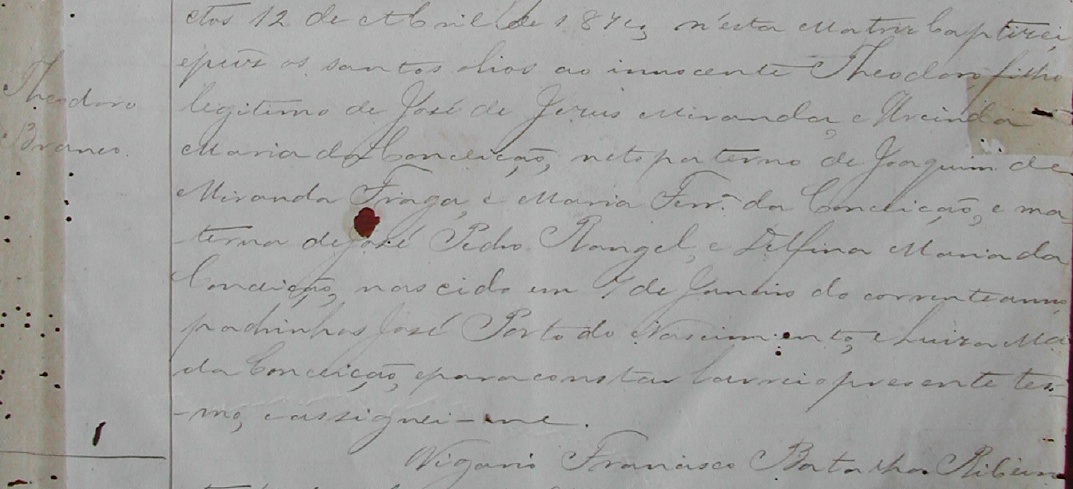 Aos 12 de Abril de 1874, n'esta Matriz baptizei
e puz os santos olios ao innocente Theodoro, filho
Theodoro
legitimo de José de Jesus Miranda, e Ursinda
Branco.
Maria da Conceição, neto paterno de Joaquim de
Miranda Fraga, e Maria Ferr.ª da Conceição, e ma-
-terno de José Pedro Rangel, e Delfina Maria da
Conceição, nascido em 7 de Janeiro do corrente anno,
padrinhos José Porto do Nascimento, e Luiza Ma
da Conceição, e para constar lavrei o presente ter-
-mo, e assignei-me.
Vigario Francisco Batalha Ribeiro